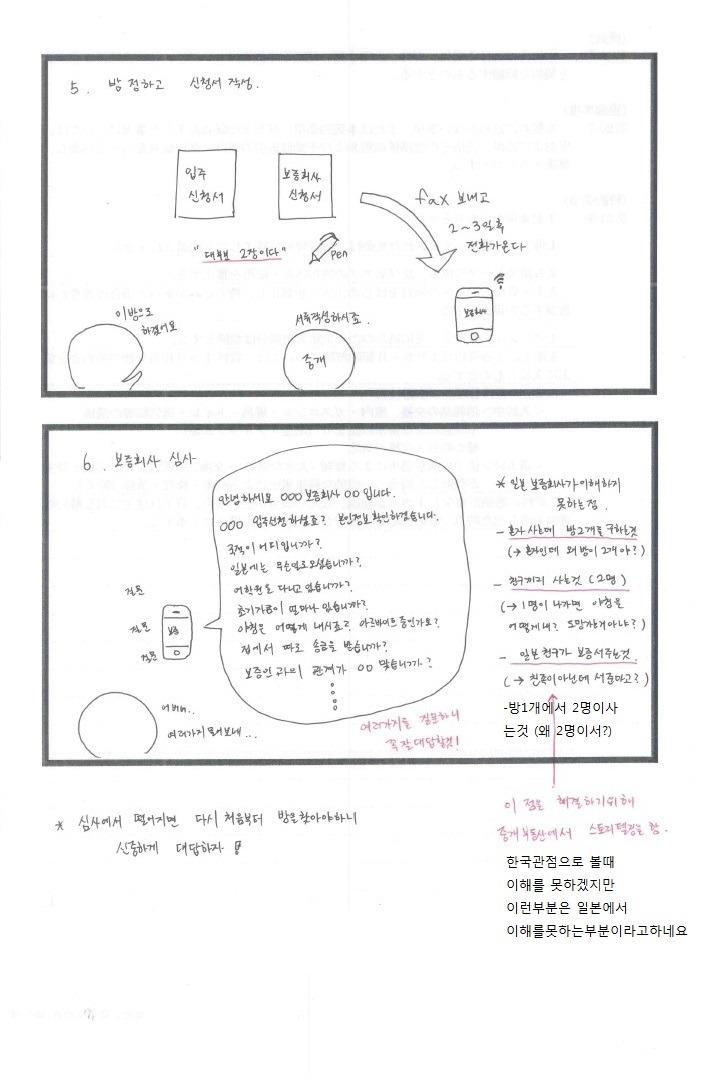 5. 방 정하고 신청서 작성.
입주
신청서
보증회사
신청서
fax 보내고
2~3일후
전화가온다
"대부분 2장이다"
pen
보증회사
이방으로
하겠어요
서류작성하시죠.
중개
6. 보증회사 심사
안녕하세요 OOO보증회사 OO입니다.
OOO 입주신청하셨죠? 본인정보확인하겠습니다.
국적이 어디입니까?
일본에는 무슨일로오셨습니까?
어학원을 다니고 있습니까?
초기가용이 얼마나 있습니까?
야칭은 어떻게 내시죠? 아르바이트중인가요?
집에서 따로 송금을 받습니까?
보증인과의 관계가 OO 맞습니까?
질문
질문
질문
보증
어버버..
여러가지 물어보네...
여러가지를 질문하니
꼭잘대답할것!
* 일본 보증회사가이해하지
못하는점.
- 혼자사는데 방2개를구하는것
(→ 혼자인데 왜방이 2개야?)
- 친구끼리 사는것 (2명)
(→ 1명이 나가면 야칭을
어떻게내? 도망가는거아냐?)
- 일본친구가 보증서주는것.
(→ 친족이아닌데 서준다고?)
-방1개에서 2명이사
는것 (왜 2명이서?)
이 점을 해결하기위해
중개부동산에서 스토리텔링을 함.
* 심사에서 떨어지면 다시 처음부터 방을찾아야하니
신중하게 대답하자!
한국관점으로 볼때
이해를 못하겠지만
이런부분은 일본에서
이해를못하는부분이라고하네요